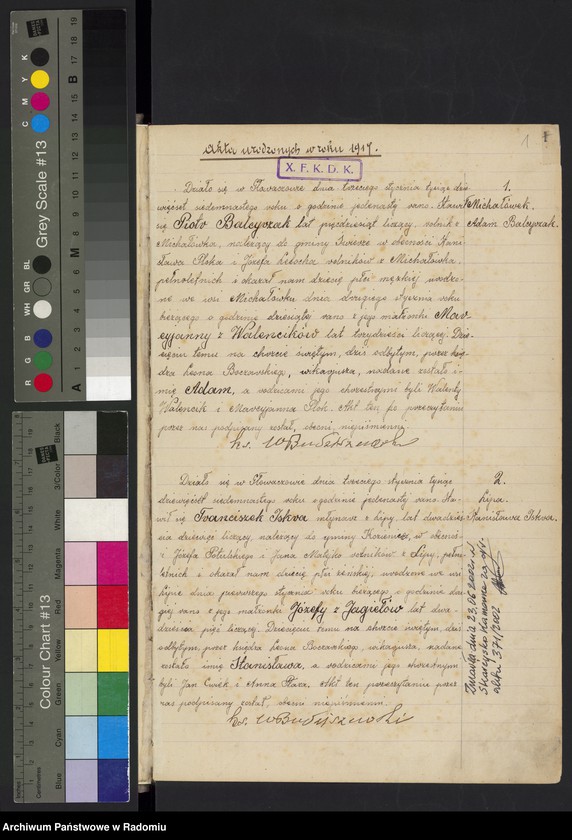 Akta urodzonych w roku 1917.
X. F. K. D. K.
1
1.
Michałówek.
Adam Balcyrzak.
Działo się w Głowaczowie dnia trzeciego stycznia tysiąc dzie
więćset siedemnastego roku o godzinie jedenastej rano. Stawił
się Piotr Balcyrzak lat pięćdziesiąt liczący, rolnik z
Michałówka, należący do gminy w obecności Stani-
sława Płoka i Józefa rolników z Michałówka,
pełnoletnich i okazał nam dziecię płci męzkiej urodzo-
ne we wsi Michałówku dnia drugiego stycznia roku
bieżącego o godzinie dziesiątej rano z jego małżonki Mar-
cyjanny z Walencików lat trzydzieści liczącej. Dzie-
cięciu temu na chrzcie świętym, dziś odbytym, przez księ-
dza Leona wikaryusza, nadane zostało i-
mię Adam, a rodzicami jego chrzestnymi byli Walenty
Walencik i Marcyjanna Płok. Akt ten po przeczytaniu
przez nas podpisany został, obecni niepiśmienni.
ks.
2.
Lipa.
Stanisława Iskra.
Działo się w Głowaczowie dnia trzeciego stycznia tysiąc
dziewięćset siedemnastego roku o godzinie jedenastej rano. Sta-
wił się Franciszek Iskra młynarz z Lipy lat dwadzieś-
cia dziewięć liczący, należący do gminy Kozienice, w obecnoś-
ci Józefa Potulskiego i Jana rolników z Lipy, pełno-
letnich i okazał nam dziecię płci żeńskiej, urodzone we wsi
Lipie dnia pierwszego stycznia roku bieżącego o godzinie dru-
giej rano z jego małżonki Józefy z Jagiełów lat dwa-
dzieścia pięć liczącej. Dziecięciu temu na chrzcie świętym, dziś
odbytym, przez księdza Leona wikaryusza, nadane
zostało imię Stanisława, a rodzicami jego chrzestnymi
byli Jan i Anna Płaza. Akt ten po przeczytaniu przez
nas podpisany został, obecni niepiśmienni.
ks.
Zmarła dnia 23.06.2002 r. w
Skarżysko Kamienna
aktu 371/2002
Grey Scale #13
K
Y
M
C
BL
GR
WH
B
G
R
A 1 2 3 4 5 6 M 7 8 9 10 11 12 13 14 15 B 17 18 19
Colour Chart #13
Black
3/Color
White
Magenta
Red
Yellow
Green
Cyan
Blue
Inches
Centimetres
Archiwum Państwowe w Radomiu